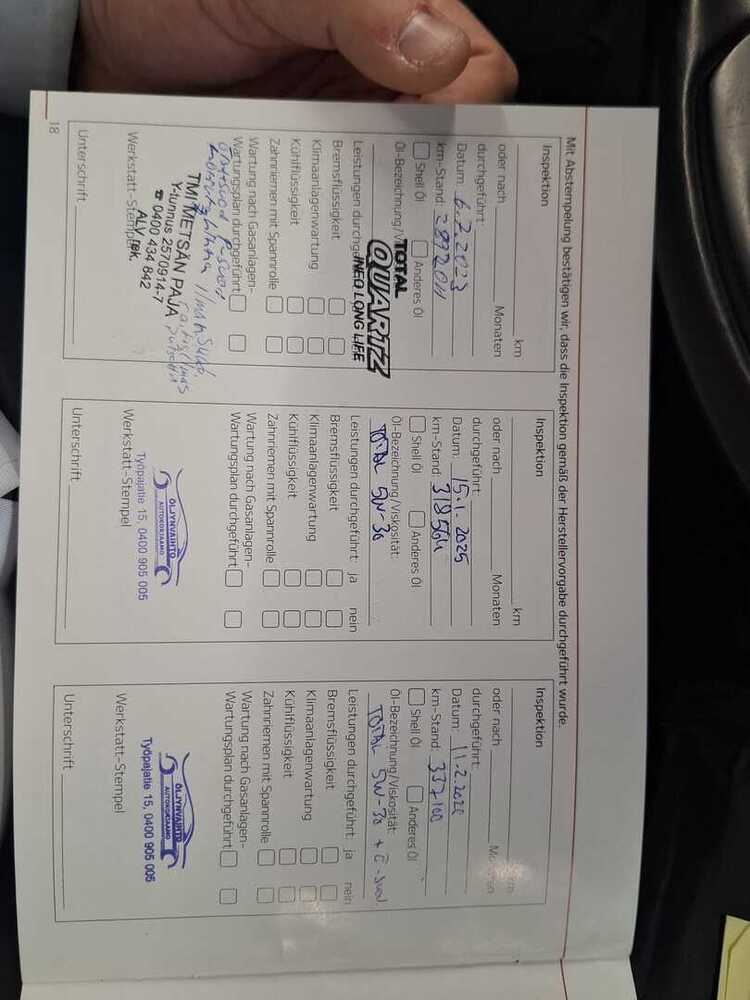 Mit Abstempelung bestätigen wir, dass die Inspektion gemäß der Herstellervorgabe durchgeführt wurde.
Inspektion
km
oder nach Monaten
durchgeführt:
Datum: 6.2.2023
km-Stand: 289204
Shell Öl Anderes Öl
Öl-Bezeichnung/V
TOTAL
QUARTZ
INEO LONG LIFE
Leistungen durchge
Bremsflüssigkeit
Klimaanlagenwartung
Kühlflüssigkeit
Zahnriemen mit Spannrolle
Wartung nach Gasanlagen-
Wartungsplan durchgeführt
TMI METSÄN PAJA
Y-tunnus 2570914-7
☎ 0400 434 842
ALV rek.
Werkstatt-Stempel
Unterschrift
18
Inspektion
km
oder nach Monaten
durchgeführt:
Datum: 15.1.2025
km-Stand: 318564
Shell Öl Anderes Öl
Öl-Bezeichnung/Viskosität:
TOTAL 5W-30
Leistungen durchgeführt: ja nein
Bremsflüssigkeit
Klimaanlagenwartung
Kühlflüssigkeit
Zahnriemen mit Spannrolle
Wartung nach Gasanlagen-
Wartungsplan durchgeführt
ÖLJYNVAIHTO
AUTOKORJAAMO
Työpajatie 15, 0400 905 005
Werkstatt-Stempel
Unterschrift
Inspektion
km
oder nach Monaten
durchgeführt:
Datum: 11.2.2026
km-Stand: 337100
Shell Öl Anderes Öl
Öl-Bezeichnung/Viskosität:
TOTAL 5W-30 +
Leistungen durchgeführt: ja nein
Bremsflüssigkeit
Klimaanlagenwartung
Kühlflüssigkeit
Zahnriemen mit Spannrolle
Wartung nach Gasanlagen-
Wartungsplan durchgeführt
ÖLJYNVAIHTO
AUTOKORJAAMO
Työpajatie 15, 0400 905 005
Werkstatt-Stempel
Unterschrift